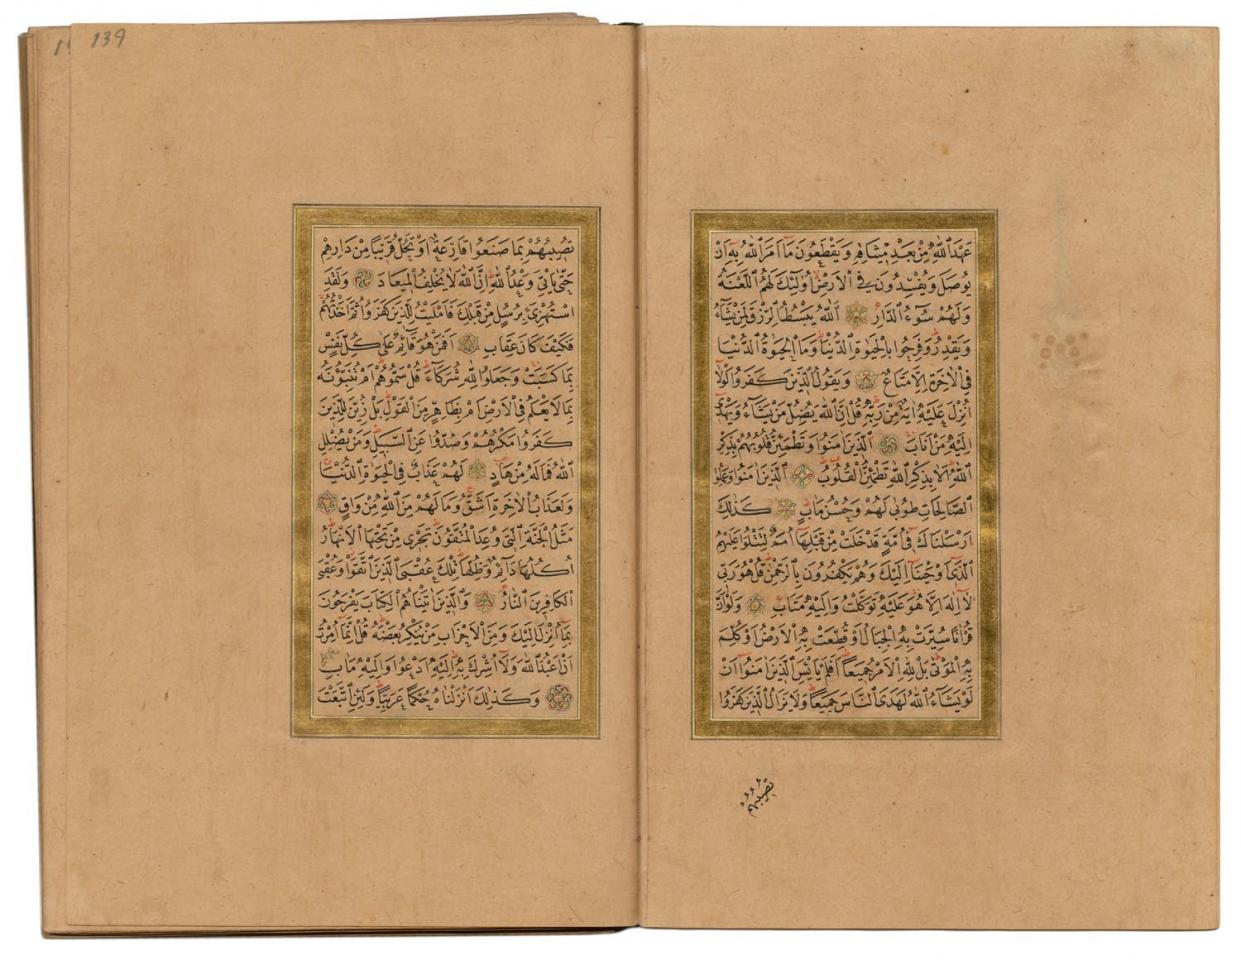 عَهْدَ اللّٰهِ مِنْ بَعْدِ مِيثَاقِهِ وَيَقْطَعُونَ مَا اَمَرَ اللّٰهُ بِهِ اَنْ
يُوصَلَ وَيُفْسِدُونَ فِي الْاَرْضِ اُولٰئِكَ لَهُمُ اللَّعْنَةُ
وَلَهُمْ سُوءُ الدَّارِ اَللّٰهُ يَبْسُطُ الرِّزْقَ لِمَنْ يَشَاءُ
وَيَقْدِرُ وَفَرِحُوا بِالْحَيٰوةِ الدُّنْيَا وَمَا الْحَيٰوةُ الدُّنْيَا
فِي الْاٰخِرَةِ اِلَّا مَتَاعٌ وَيَقُولُ الَّذِينَ كَفَرُوا لَوْلَا
اُنْزِلَ عَلَيْهِ اٰيَةٌ مِنْ رَبِّهِ قُلْ اِنَّ اللّٰهَ يُضِلُّ مَنْ يَشَاءُ وَيَهْدِي
اِلَيْهِ مَنْ اَنَابَ اَلَّذِينَ اٰمَنُوا وَتَطْمَئِنُّ قُلُوبُهُمْ بِذِكْرِ
اللّٰهِ اَلَا بِذِكْرِ اللّٰهِ تَطْمَئِنُّ الْقُلُوبُ اَلَّذِينَ اٰمَنُوا وَعَمِلُوا
الصَّالِحَاتِ طُوبٰى لَهُمْ وَحُسْنُ مَاٰبٍ كَذٰلِكَ
اَرْسَلْنَاكَ فِي اُمَّةٍ قَدْ خَلَتْ مِنْ قَبْلِهَا اُمَمٌ لِتَتْلُوَا عَلَيْهِمُ
الَّذِي اَوْحَيْنَا اِلَيْكَ وَهُمْ يَكْفُرُونَ بِالرَّحْمٰنِ قُلْ هُوَ رَبِّي
لَا اِلٰهَ اِلَّا هُوَ عَلَيْهِ تَوَكَّلْتُ وَاِلَيْهِ مَتَابِ وَلَوْ اَنَّ
قُرْاٰنًا سُيِّرَتْ بِهِ الْجِبَالُ اَوْ قُطِّعَتْ بِهِ الْاَرْضُ اَوْ كُلِّمَ
بِهِ الْمَوْتٰى بَلْ لِلّٰهِ الْاَمْرُ جَمِيعًا اَفَلَمْ يَايْئَسِ الَّذِينَ اٰمَنُوا اَنْ
لَوْ يَشَاءُ اللّٰهُ لَهَدَى النَّاسَ جَمِيعًا وَلَا يَزَالُ الَّذِينَ كَفَرُوا
تصيبهم
139
تُصِيبُهُمْ بِمَا صَنَعُوا قَارِعَةٌ اَوْ تَحُلُّ قَرِيبًا مِنْ دَارِهِمْ
حَتّٰى يَاْتِيَ وَعْدُ اللّٰهِ اِنَّ اللّٰهَ لَا يُخْلِفُ الْمِيعَادَ وَلَقَدِ
اسْتُهْزِئَ بِرُسُلٍ مِنْ قَبْلِكَ فَاَمْلَيْتُ لِلَّذِينَ كَفَرُوا ثُمَّ اَخَذْتُهُمْ
فَكَيْفَ كَانَ عِقَابِ اَفَمَنْ هُوَ قَائِمٌ عَلٰى كُلِّ نَفْسٍ
بِمَا كَسَبَتْ وَجَعَلُوا لِلّٰهِ شُرَكَاءَ قُلْ سَمُّوهُمْ اَمْ تُنَبِّؤُنَهُ
بِمَا لَا يَعْلَمُ فِي الْاَرْضِ اَمْ بِظَاهِرٍ مِنَ الْقَوْلِ بَلْ زُيِّنَ لِلَّذِينَ
كَفَرُوا مَكْرُهُمْ وَصُدُّوا عَنِ السَّبِيلِ وَمَنْ يُضْلِلِ
اللّٰهُ فَمَا لَهُ مِنْ هَادٍ لَهُمْ عَذَابٌ فِي الْحَيٰوةِ الدُّنْيَا
وَلَعَذَابُ الْاٰخِرَةِ اَشَقُّ وَمَا لَهُمْ مِنَ اللّٰهِ مِنْ وَاقٍ
مَثَلُ الْجَنَّةِ الَّتِي وُعِدَ الْمُتَّقُونَ تَجْرِي مِنْ تَحْتِهَا الْاَنْهَارُ
اُكُلُهَا دَائِمٌ وَظِلُّهَا تِلْكَ عُقْبَى الَّذِينَ اتَّقَوْا وَعُقْبَى
الْكَافِرِينَ النَّارُ وَالَّذِينَ اٰتَيْنَاهُمُ الْكِتَابَ يَفْرَحُونَ
بِمَا اُنْزِلَ اِلَيْكَ وَمِنَ الْاَحْزَابِ مَنْ يُنْكِرُ بَعْضَهُ قُلْ اِنَّمَا اُمِرْتُ
اَنْ اَعْبُدَ اللّٰهَ وَلَا اُشْرِكَ بِهِ اِلَيْهِ اَدْعُوا وَاِلَيْهِ مَاٰبِ
وَكَذٰلِكَ اَنْزَلْنَاهُ حُكْمًا عَرَبِيًّا وَلَئِنِ اتَّبَعْتَ